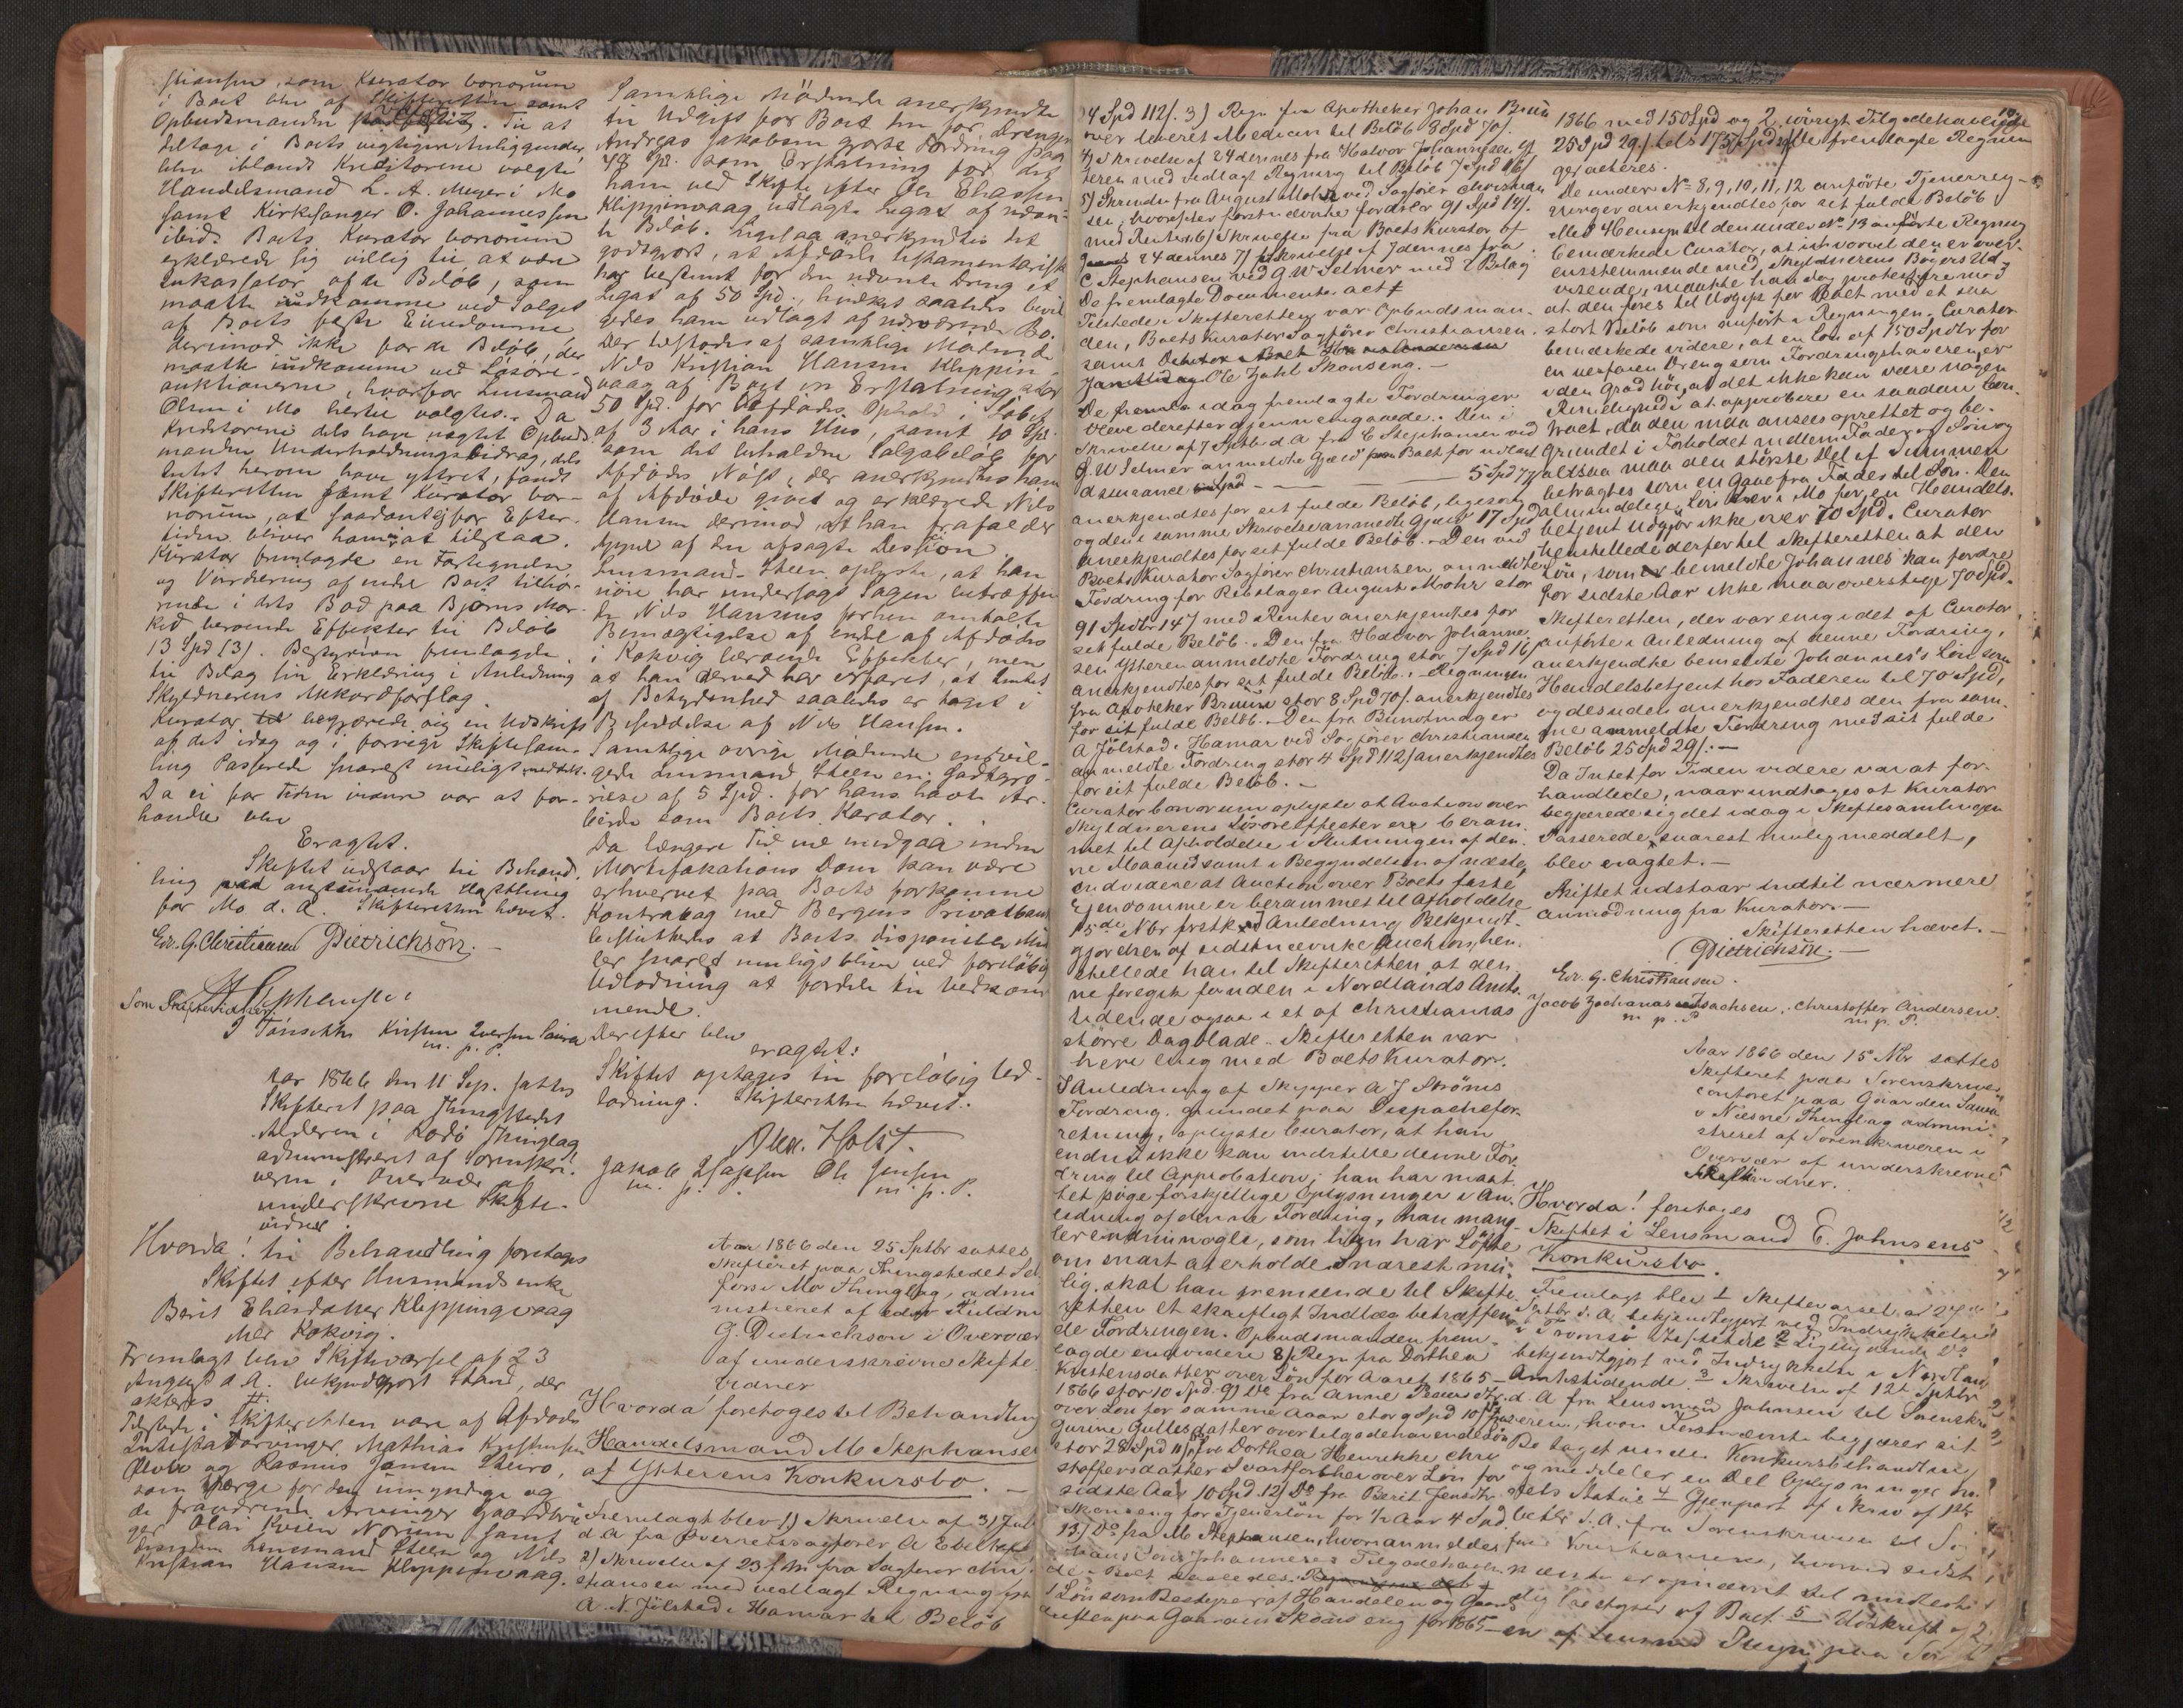 stiansen, som Kurator bonorum
i Boet blev af Skifteretten samt
Opbudsmanden. Til at
deltage i Boets vigtigere Anliggender
blev iblandt Kreditorerne valgte
Handelsmand L. A. Meyer i Mo
samt Kirkesanger O. Johannessen
ibid. Boets Kurator bonorum
erklærede sig villig til at være
Inkassator af de Beløb, som
maatte indkomme ved Salget
af Boets faste Eiendomme
derimod ikke for de Beløb, der
maatte indkomme ved Løsøre-
auktionerne, hvorfor Lensmand
Olsen i Mo hertil valgtes. Da
Kreditorerne dels have nægtet Opbuds-
manden Underholdningsbidrag, dels
Intet herom have yttret, fandt
Skifteretten samt Kurator bo-
norum, at saadant ei for Efter-
tiden bliver ham at tilstaa.
Kurator fremlagde en Fortegnelse
og Vurdering af endel Boet tilhø-
rende i dets Bod paa Bjørns Mar-
ked beroende Effekter til Beløb
13 Spd 131. Bestyreren fremlagde
til Bilag sin Erklæring i Anledning
Skyldnerens Akkordforslag.
Kurator begjærede sig en Udskrift
af det idag og i forrige Skiftesam-
ling Passerede snarest muligt meddelt.
Da ei for Tiden videre var at for-
handle blev
Eragtet.
Skiftet udstaar til Behand-
ling ved anstundende Høstthing
for Mo d. A. Skifteretten hævet.
Edv. G. Christiansen Dietrichson.
Som Skiftevidner:
Iversen
m. p. P.
Aar 1866 den 11 Sep. sattes
Skifteret paa Thingstedet
i Rødø Thinglag
administreret af Sorenskri-
veren i Overvær af
underskrevne Skifte-
vidner.
Hvorda! til Behandling foretages
Skiftet efter Husmandsenke
Berit Eliasdatter Klippingvaag
eller Kokvig.
Fremlagt blev Skiftevarsel af 23
August d. A. bekjendtgjort, der
akteres #
Tilstede i Skifteretten vare af Afdødes
Intestatarvinger Mathias Kristensen
og Rasmus Jansen
som Værge for den umyndige og
de fraværende Arvinger Gaardbru-
ger Olai
Lensmand Steen og Nils
Kristian Hansen Klippenvaag.
Samtlige Mødende anerkjendte
til Udgift for Boet den for Drengen
Andreas Jakobsen gjorte Fordring paa
48 Spd. som Erstatning for det
ham ved Skifte efter Ole Eliassen
Klippenvaag udlagte Legat af nævn-
te Beløb. Ligesaa anerkjendtes det
godtgjort, at Afdøde testamentarisk
har bestemt for den nævnte Dreng et
Legat af 50 Spd., hvilket saaledes bevil-
gedes ham udlagt af nærværende Bo.
Der tilstodes af samtlige Mødende
Nils Kristian Hansen Klippen-
vaag af Boet en Erstatning stor
50 Spd. for Afdødes Ophold i Løbet
af 3 Aar i hans Hus, samt 10 Spd.
som det beholdne Salgsbeløb for
Afdødes Nøst, der anerkjendtes ham
af Afdøde givet og erklærede Nils
Hansen derimod, at han frafalder
Appel af den afsagte Decision.
Lensmand Steen oplyste, at han
nøie har undersøgt Sagen betræffen-
de Nils Hansens forhen omhandlede
Bemægtigelse af endel af Afdødes
i Kokvig beroende Effekter, men
at han derved har erfaret, at Intet
af Betydenhed saaledes er taget i
Besiddelse af Nils Hansen.
Samtlige øvrige Mødende envil-
gede Lensmand Steen en Godtgjø-
relse af 5 Spd. for hans havte Ar-
beide som Boets Kurator.
Da længere Tid vil medgaa inden
Mortifikations Dom kan være
erhvervet paa Boets forkomne
Kontrabog med Bergens Privatbank
besluttedes at Boets disponible Mid-
ler snarest muligst bliver ved foreløbig
Udlodning at fordele til Vedkom-
mende.
Derefter blev
eragtet:
Skiftet optages til foreløbig Ud-
lodning. Skifteretten hævet.
Alex. Holst.
Jakob Isaksen Ole Jensen
m. p. m. p. P.
Aar 1866 den 25 Sptbr sattes
Skifteret paa Thingstedet Sel-
fors i Mo Thinglag, admi-
nistreret af
G. Dietrichson i Overvær
af underskrevne Skifte-
vidner
Hvorda foretoges til Behandling
Handelsmand M Stephansen
af Ytterens Konkursbo.
Fremlagt blev 1) Skrivelse af 31 Juli
d. A. fra Overretssagfører A
2) Skrivelse af 23 f. M. fra Sagfører Chri-
stiansen med vedlagt Regning fra
A. N. Jølstad i Hamar til Beløb
4 Spd 112/. 3) Regn fra Apotheker Johan Bruun
over leveret Medicin til Beløb 8 Spd 70/.
4) Skrivelse af 24 dennes fra Halvor Johannesen Yt
teren med vedlagt Regning til Beløb 7 Spd 16/
5) Skrivelse fra August Mohr ved Sagfører Christian
sen, hvorefter førstnævnte fordrer 91 Spd 14/.
med Renter. 6) Skrivelse fra Boets Kurator af
24 dennes 7) Skrivelse af 7 dennes fra
C Stephansen ved G W Selmer med 2 Bilag
De fremlagte Documenter act #
Tilstede i Skifteretten var Opbudsman-
den, Boets Kurator Sagfører Christiansen.
samt
Ole Zahl Skonseng. –
De idag fremlagte Fordringer
bleve derefter gjennemgaaede. Den i
Skrivelse af 7 Sptbr d A fra C Stephansen ved
G. W Selmer anmeldte Gjæld Boet for udlagt
Assurance – – – – 5 Spd 77/
anerkjendtes for sit fulde Beløb, ligesom
og den i samme Skrivelse anmeldte Gjæld 17 Spd
anerkjendtes for sit fulde Beløb. – Den ved
Boets Kurator Sagfører Christiansen anmeldte
Fordring for Rebslager August Mohr stor
91 Spdlr 14/ med Renter anerkjendtes for
sit fulde Beløb. – Den fra Halvor Johanne-
sen Ytteren anmeldte Fordring stor 7 Spd 16/
anerkjendtes for sit fulde Beløb. – Regningen
fra Apotheker Bruun stor 8 Spd 70/. anerkjendtes
for sit fulde Beløb. – Den fra Buntmager
A Jølstad i Hamar ved Sagfører Christiansen
anmeldte Fordring stor 4 Spd 112/ anerkjendtes
for sit fulde Beløb. –
Curator bonorum oplyste at Auction over
Skyldnerens Løsøreeffecter ere beram-
met til Afholdelse i Slutningen af den-
ne Maaned samt i Begyndelsen af næste,
endvidere at Auction over Boets faste
Ejendomme er berammet til Afholdelse
15de Nbr førstk. I Anledning Bekjendt-
gjørelsen af sidstnævnte Auction, hen-
stillede han til Skifteretten, at den-
ne foregik foruden i Nordlands Amts-
tidende ogsaa i et af Christianias
større Dagblade. – Skifteretten var
heri enig med Boets Kurator.
I Anledning af Skipper A J Strøms
Fordring, grundet paa Dispachefor-
retning, oplyste Curator, at han
endnu ikke kan indstille denne For-
dring til Approbation; han har maat-
tet søge forskjellige Oplysninger i An-
ledning af denne Fordring, han mang-
ler endnu nogle, som han har Løfte
om snart at erholde. Snarest mu-
lig skal han fremsende til Skifte-
retten et skriftligt Indlæg betræffen-
de Fordringen. Opbudsmanden frem-
lagde endvidere 8) Regn fra Dorthea
Kristensdatter over Løn for Aaret 1865–
1866 stor 10 Spd. 9) Do fra Anne
over Løn for samme Aar stor 9 Spd 10)
Gurine Gullesdatter over tilgodehavende Løn
stor 28 Spd 11) Do fra Dorthea Henrikke Chri-
stoffersdatter Svartforshei over Løn for
sidste Aar 10 Spd. 12) Do fra Berit Jensdtr
Skonseng for Tjenerløn for ½ Aar 4 Spd.
13) Do fra M Stephansen, hvori anmeldes
hans Søns Johanneses Tilgodehaven-
de i Boet saaledes:
1 Løn som Bestyrer af Handelen og Gaards
driften paa Gaarden Skonseng for 1865–
1866 med 150 Spd og 2 øvrigt Tilgodehavende
25 Spd 29/. tils 175 Spd 29/. De fremlagte Regnin
ger acteres.
De under No 8, 9, 10, 11, 12 anførte Tjenerreg-
ninger anerkjendtes for sit fulde Beløb
Med Hensyn til den under No 13 anførte Regning
bemærkede Curator, at ihvorvel den er over-
ensstemmende med Skyldnerens Bøgers Ud-
visende, maatte han dog protestere mod
at den føres til Udgift for Boet med et saa
stort Beløb som anført i Regningen. Curator
bemærkede videre, at en Løn af 150 Spdlr for
en uerfaren Dreng som Fordringshaveren, er
i den Grad høi, at det ikke kan være nogen
Rimelighed i at approbere en saadan Con-
tract, da den maa ansees oprettet og be-
grundet i Forholdet mellem Fader og Søn og
altsaa maa den største Del af Summen
betragtes som en Gave fra Fader til Søn. Den
almindelige Løn her i Mo for en Handels-
betjent udgjør ikke over 70 Spd. Curator
henstillede derfor til Skifteretten at den
Løn, som bemeldte Johannes kan fordre
for sidste Aar ikke maa overstige 70 Spd.
Skifteretten, der var enig i det af Curator
anførte i Anledning af denne Fordring,
anerkjendte bemeldte Johannes's Løn som
Handelsbetjent hos Faderen til 70 Spd,
og desuden anerkjendtes den fra sam-
me anmeldte Fordring med sit fulde
Beløb 25 Spd 29/. –
Da Intet for Tiden videre var at for-
handlede, naar undtages at Kurator
begjærede sig det idag i Skiftesamlingen
Passerede snarest mulig meddelt,
blev eragtet. –
Skiftet udstaar indtil nærmere
Anmodning fra Kurator. –
Skifteretten hævet. –
Dietrichson. –
Edv. G. Christiansen.
Jacob Zachariassen Isachsen, Christoffer Andersen.
m. p. P. m. p. P.
Aar 1866 den 15 Nbr sattes
Skifteret paa Sorenskriver
contoret paa Gaarden
i Næsne Thinglag admini-
streret af Sorenskriveren i
Overvær af underskrevne
Skiftevidner.
Hvorda! foretages
Skiftet i Lensmand E. Johnsens
Konkursbo.
Fremlagt blev 1 Skiftevarsel af 27
Sptbr d. A. bekjendtgjort ved Indrykkelse
i Tromsø Stiftstid. 2 Ligelydende Do
bekjendtgjort ved Indrykkelse i Nordlands
Amtstidende. 3 Skrivelse af 12te Sptbr
d. A fra Lensmand Johnsen til Sorenskri-
veren, hvori Førstnævnte begjærer sit
Bo taget under Konkursbehandling
og meddeler en Del Oplysninger om
dets Status 4 Gjenpart af Skriv af 1ste
Octbr d. A. fra Sorenskriveren til Sag
fører Christiansen, hvorved sidst
nævnte er opnævnt til midlerti-
dig Bestyrer af Boet 5 Udskrift af 2
en af Lensmand paa